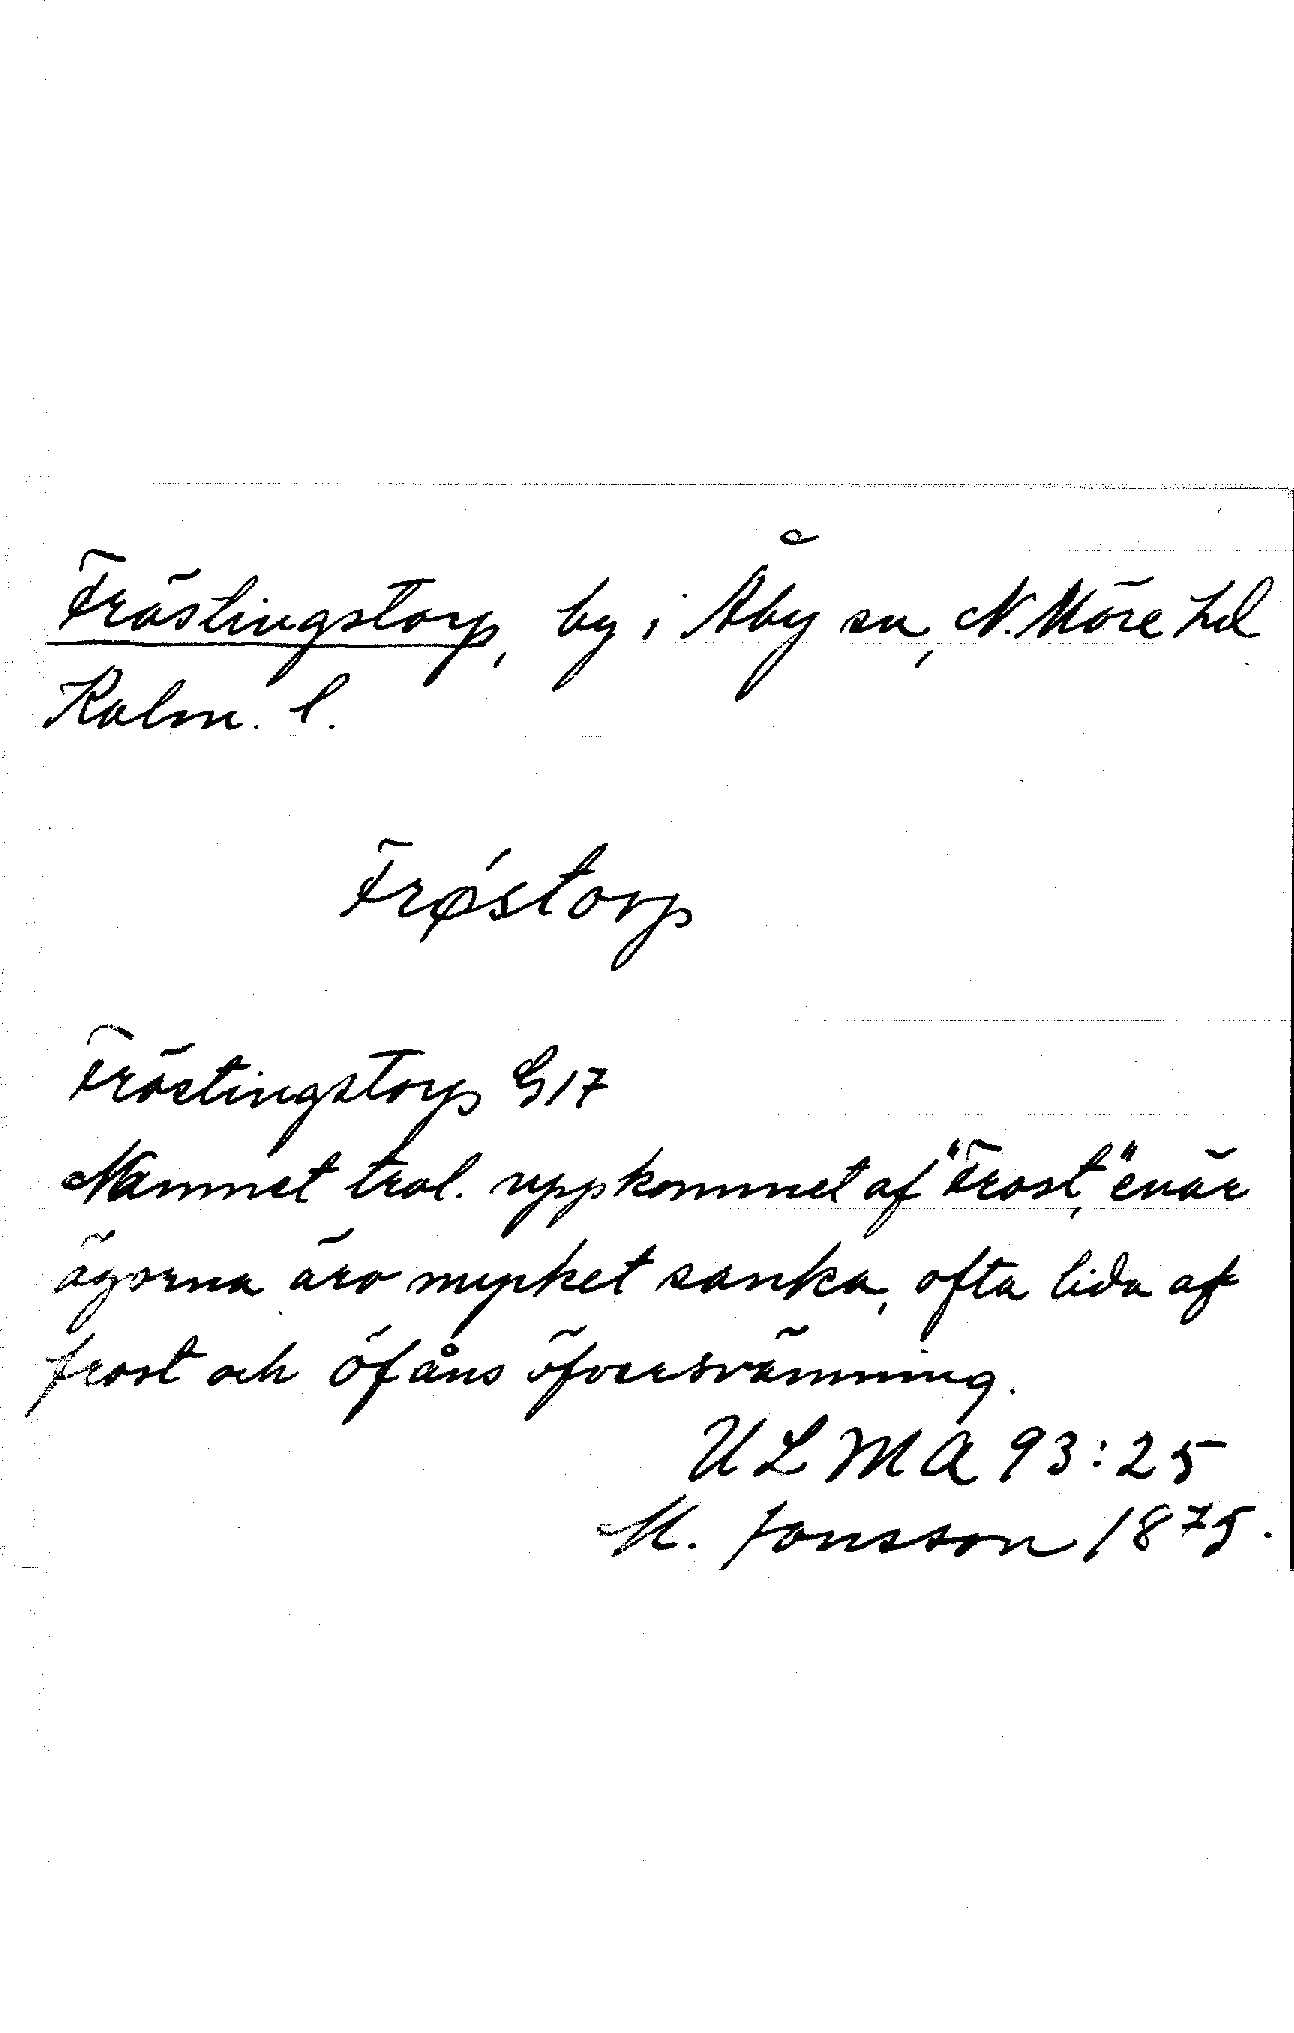 Fröstingstorp, by i Åby sn, N. Möre hd
Kalm. l.
Frǿstorp
Fröstingstorp G17
Namnet trol. uppkommet af "Frost", enär
ägorna äro mycket sanka, ofta lida af
frost och öfåns öfversvämning.
ULMA 93:25
M. Jonsson 1875.